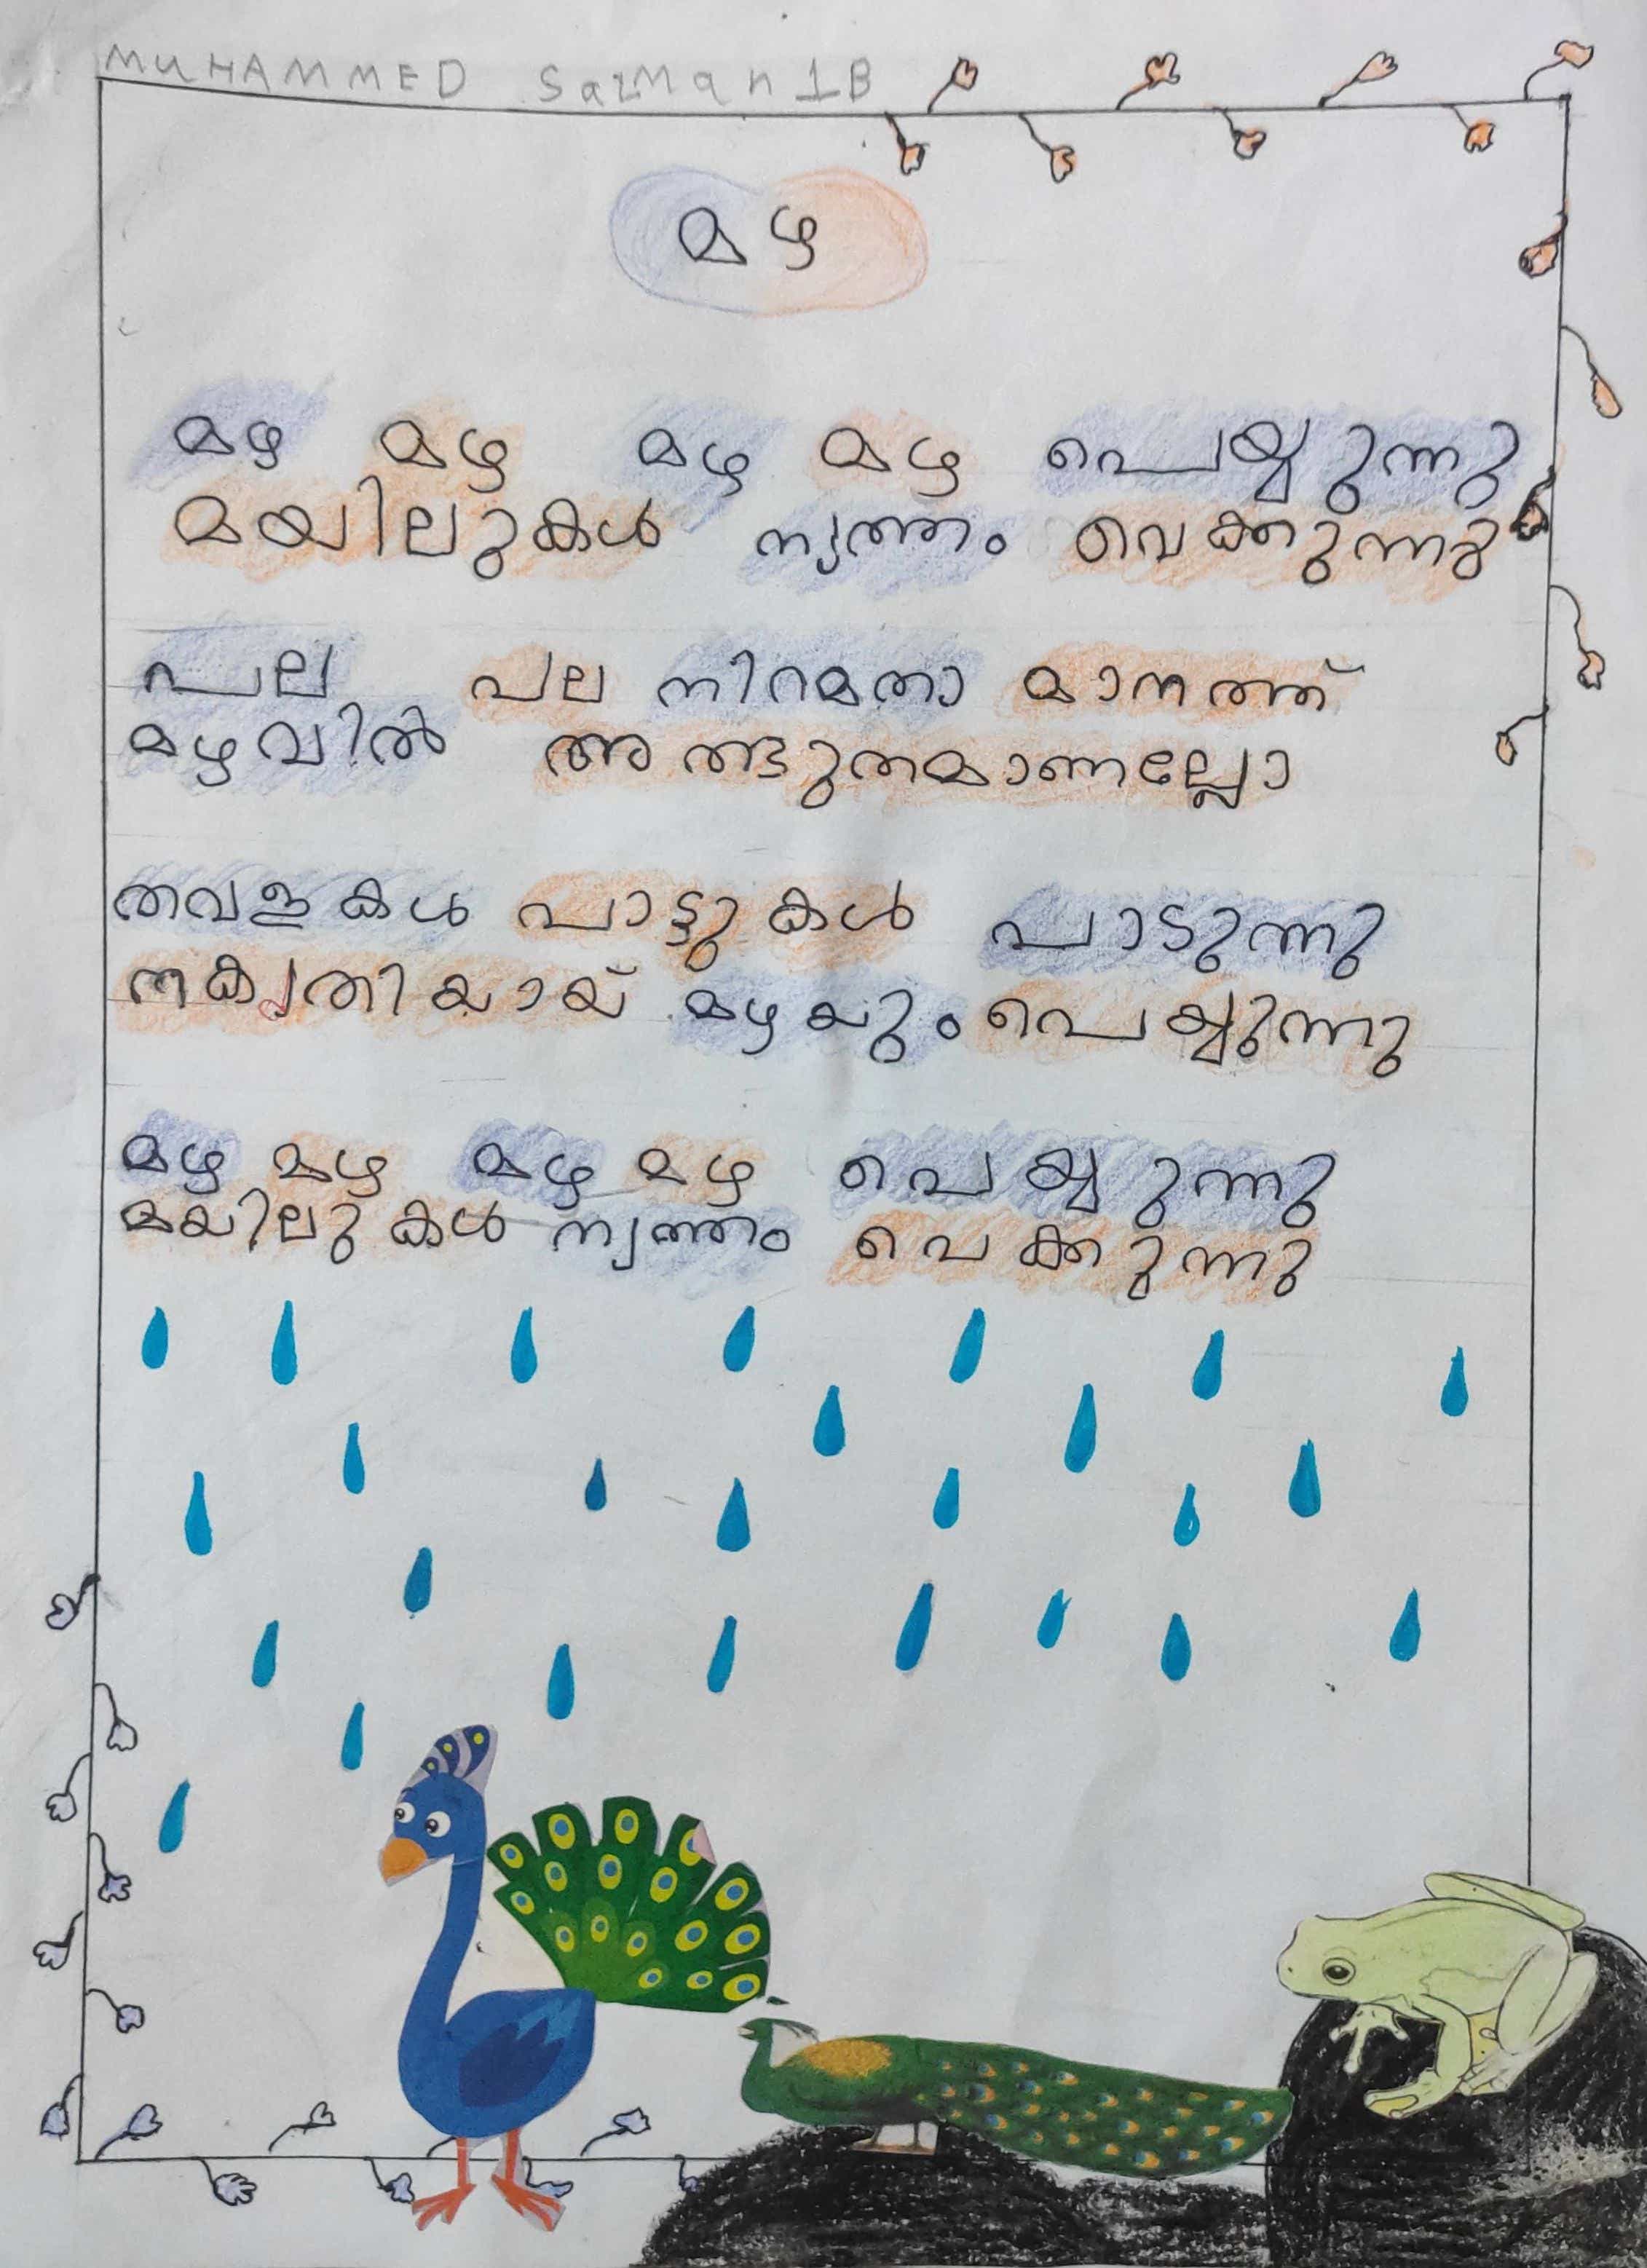 MUHAMMED Salman 1B
മഴ
മഴ മഴ മഴ മഴ പെയ്യുന്നു
മയിലുകൾ നൃത്തം വെക്കുന്നു
പല പല നിറമതാ മാനത്ത്
മഴവിൽ അത്ഭുതമാണല്ലോ
തവളകൾ പാട്ടുകൾ പാടുന്നു
മഴയും പെയ്യുന്നു
മഴ മഴ മഴ മഴ പെയ്യുന്നു
മയിലുകൾ നൃത്തം വെക്കുന്നു